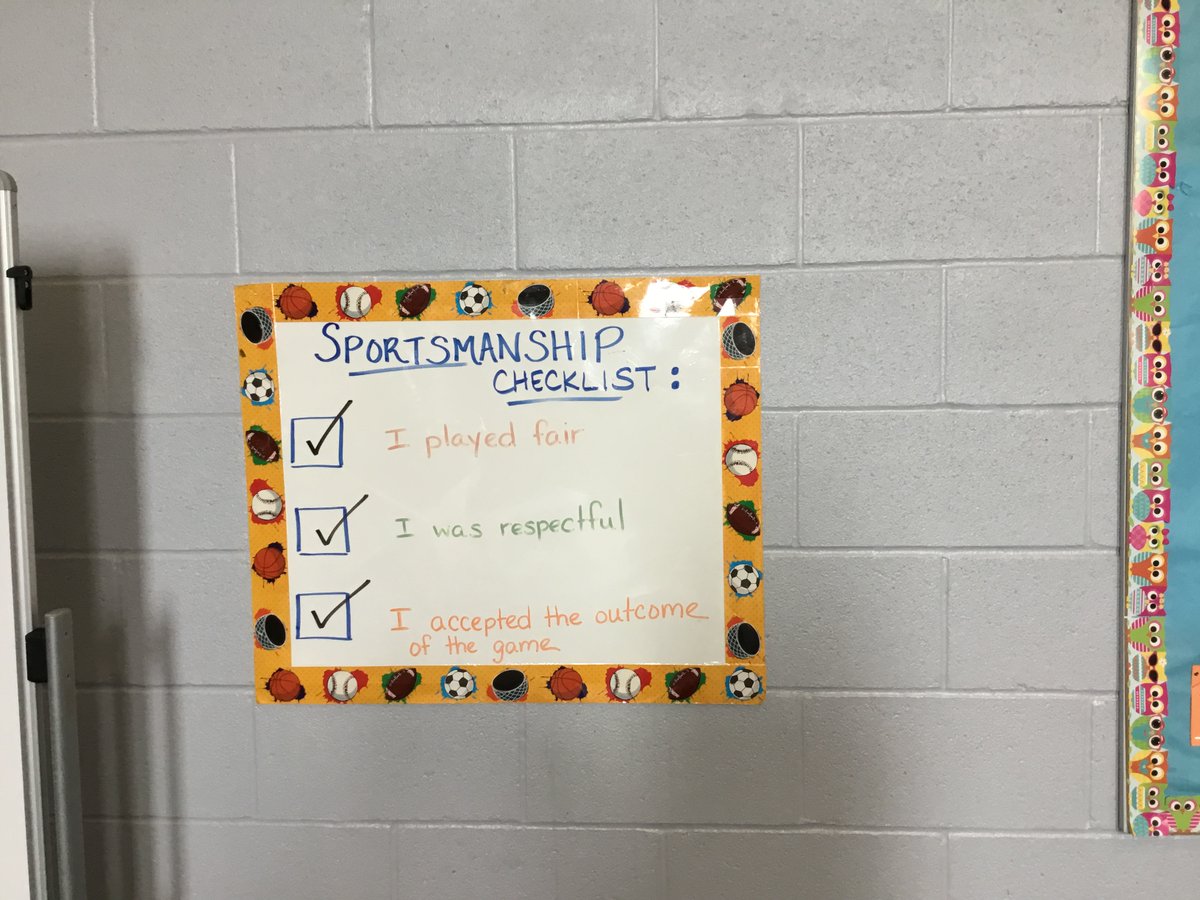 SPORTSMANSHIP
CHECKLIST:
I played fair
I was respectful
I accepted the outcome
of the game